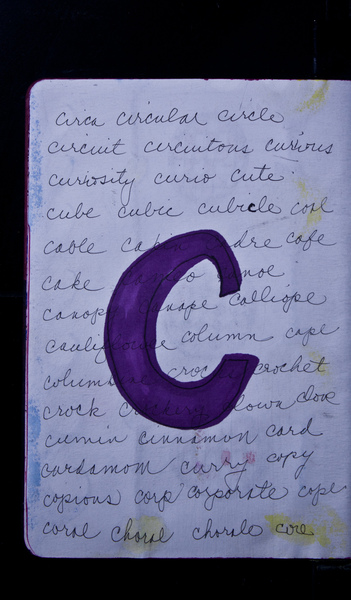 circa circular circle
circuit circuitous curious
curiosity curio cute
cube cubic cubicle cool
cable cabin cadre cafe
cake cameo canoe
canopy canape calliope
cauliflower column cape
columbine crocus crochet
crock clown clove
cumin cinnamon card
cardamom curry copy
copious corp corporate cope
coral choral chorale core
C